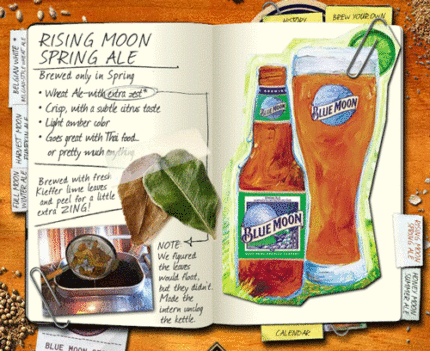 HISTORY
BREW YOUR OWN
RISING MOON
SPRING ALE
Brewed only in Spring
• Wheat Ale with extra zest*
• Crisp, with a subtle citrus taste
• Light amber color
• Goes great with Thai food...
or pretty much anything
Brewed with fresh
Kieffer lime leaves
and peel for a little
extra ZING!
NOTE
We figured
the leaves
would float,
but they didn't.
Made the
intern unclog
the kettle.
BELGIAN WHITE
BELGIAN-STYLE WHEAT ALE
HARVEST MOON
PUMPKIN ALE
FULL MOON
WINTER ALE
BLUE MOON
BLUE MOON
BLUE MOON
RISING MOON
SPRING ALE
HONEY MOON
SUMMER ALE
CALENDAR
BLUE MOON